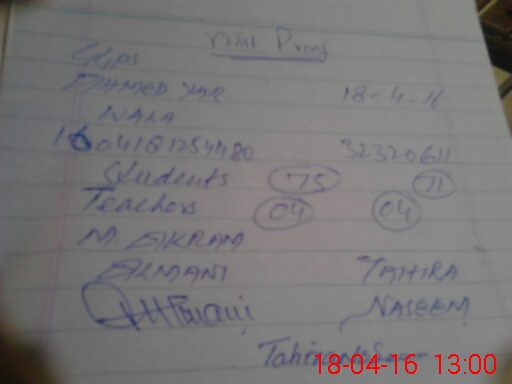 Visit Proof
GGPS
AHMED YAR 18-4-16
WALA
1604181254480 32320611
Students 75 71
Teachers 04 04
M. AKRAM
ALMANI TAHIRA
NASEEM
18-04-16 13:00